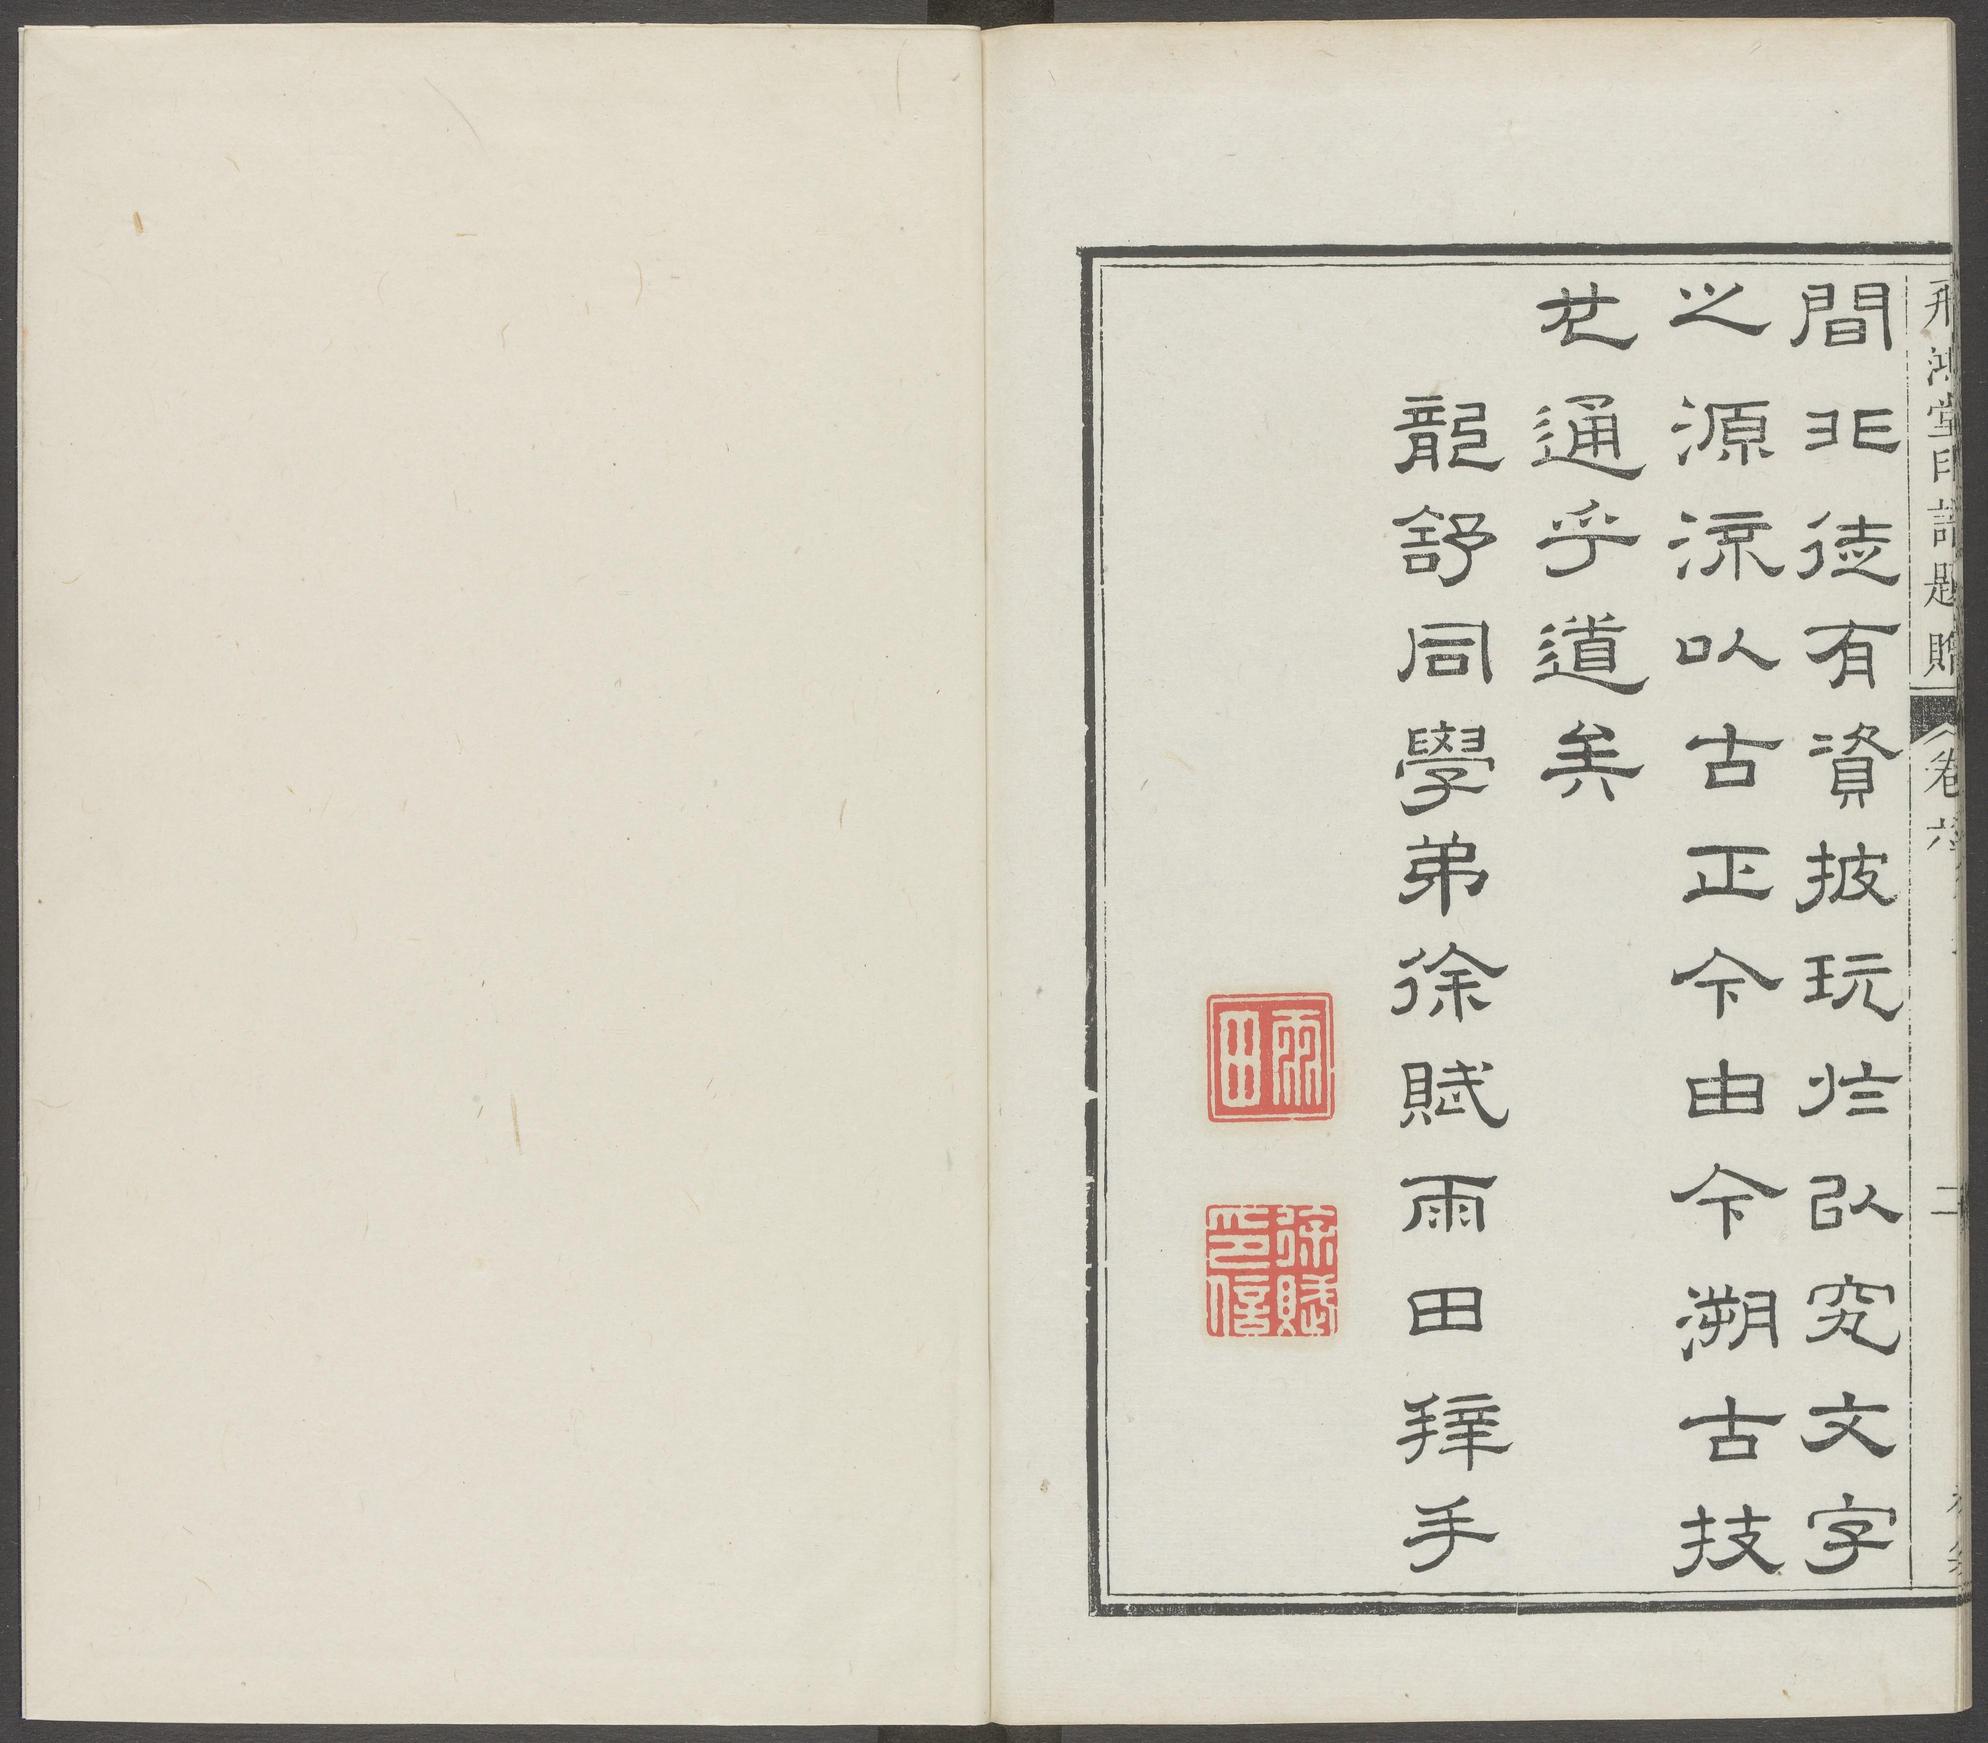 間非徒有資披玩於以究文字
之源流以古正今由今溯古技
也通乎道矣
龍舒同學弟徐賦雨田拜手
雨田
徐賦印信
飛鴻堂印譜題贈
卷六
二